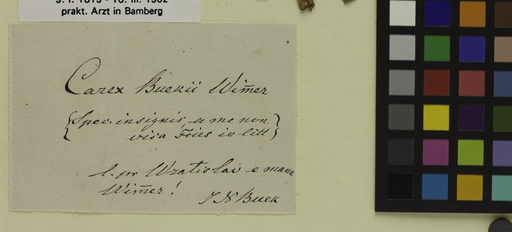 5. I. 1819 - 10. III. 1902
prakt. Arzt in Bamberg
Carex Buekii Wim̄er
{Spec. insignis, a me non
visa Fries in litt}
l. pr Wratislav e manu
Wim̄er!
J N Buek